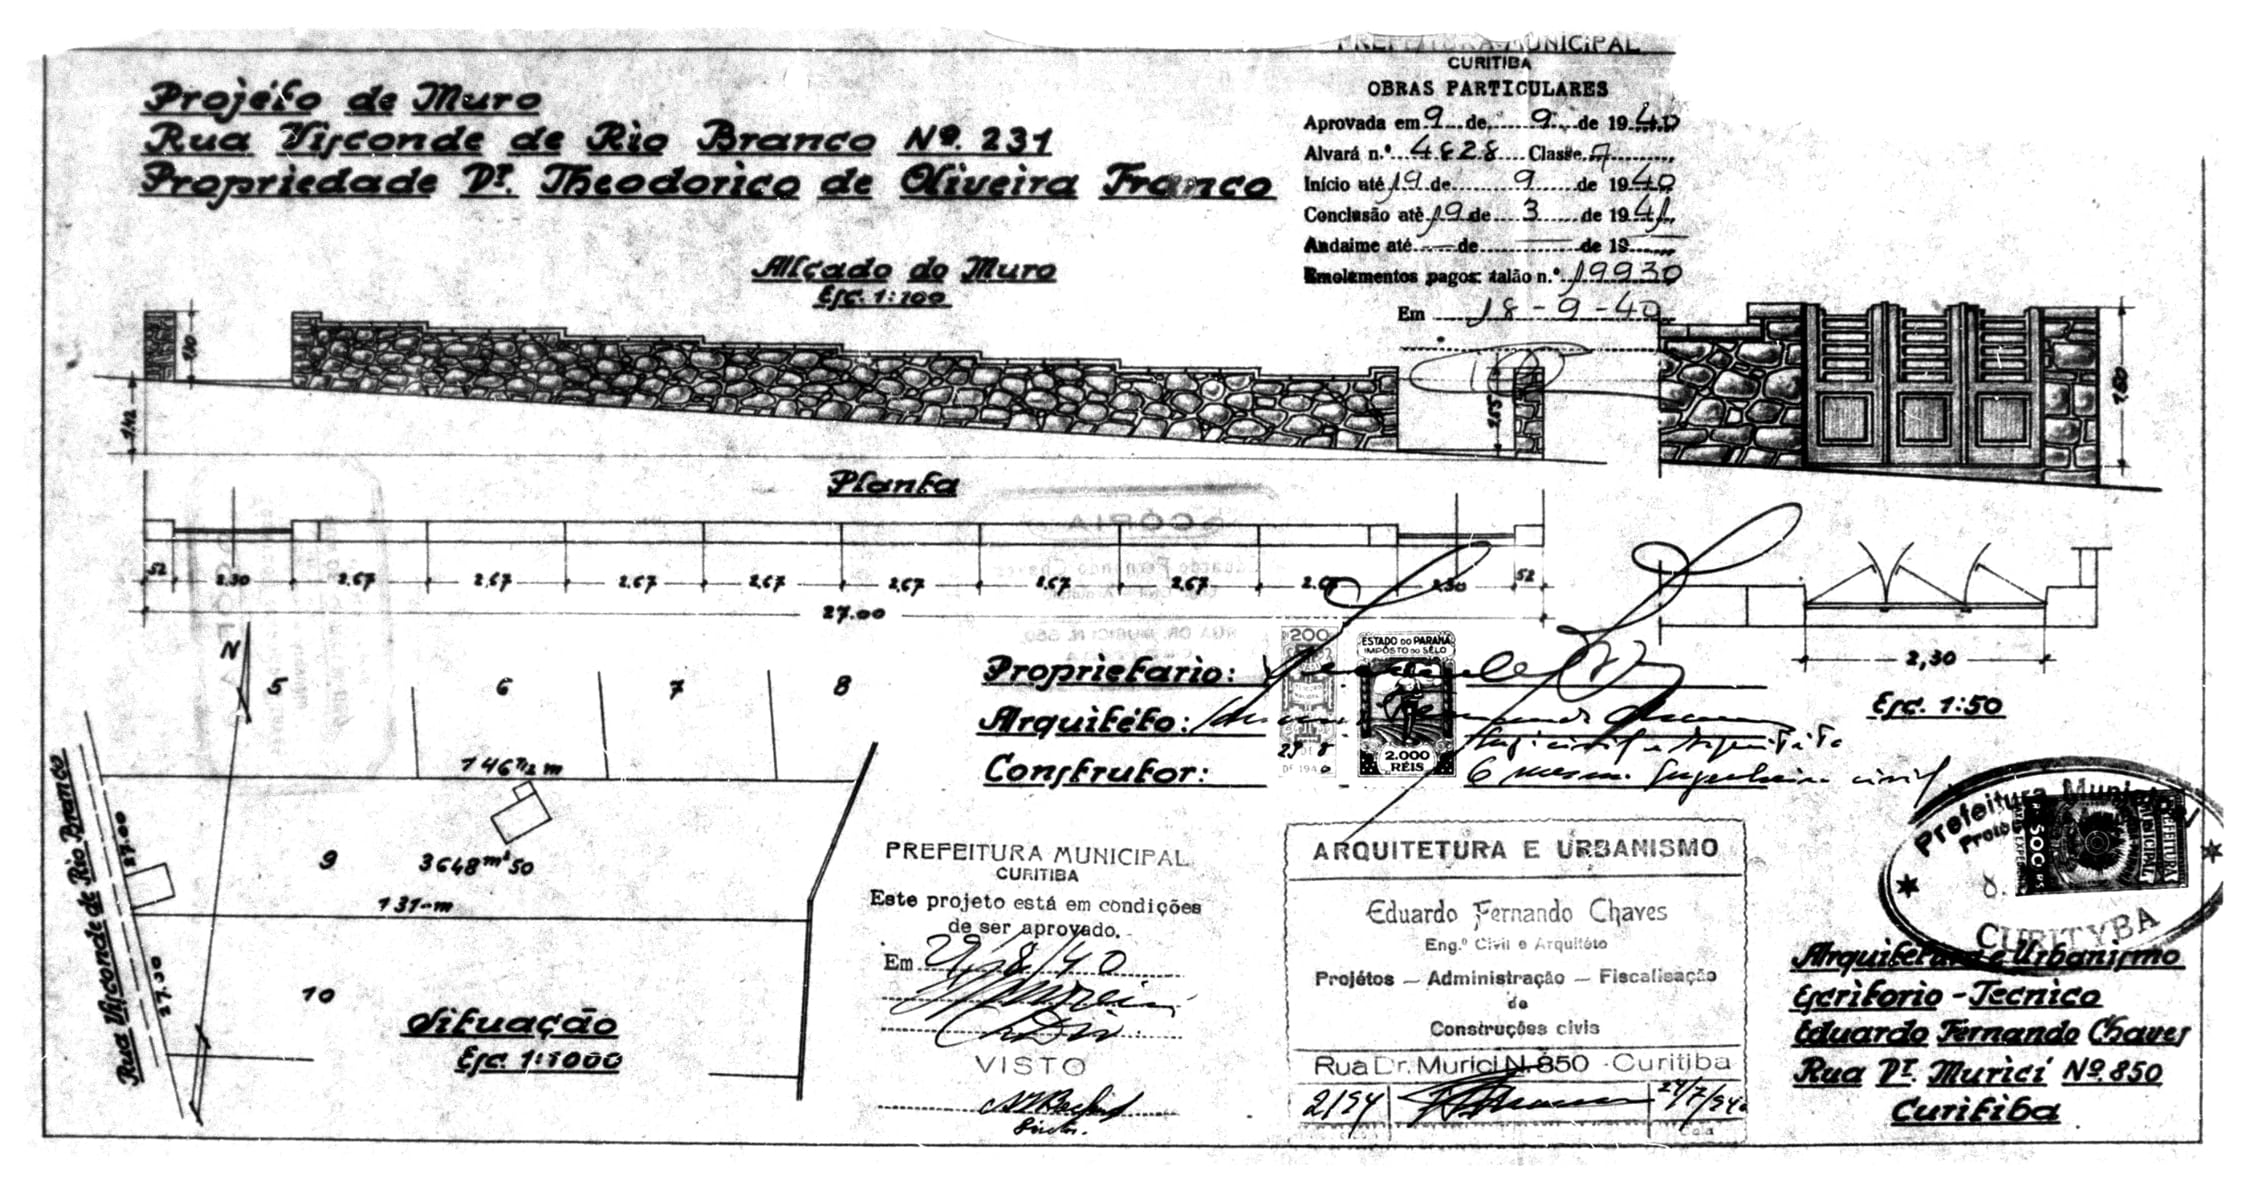 Projéto de Muro
Rua Visconde de Rio Branco Nº. 231
Propriedade Dr. Theodorico de Oliveira Franco
PREFEITURA MUNICIPAL
CURITIBA
OBRAS PARTICULARES
Aprovada em 9 de 9 de 1940
Alvará n.º 4828 Classe A
Início até 19 de 9 de 1940
Conclusão até 19 de 3 de 1941
Andaime até de de 19
Emolumentos pagos: talão n.º 19930
Em 18-9-40
Alçado do Muro
Esc. 1:100
1,42
1,55
1,80
Planta
52 2,30 2,67 2,67 2,67 2,67 2,67 2,67 2,67 2,30 52
27.00
2,30
Esc. 1:50
N
5 6 7 8
146 m
9
3648 m² 50
131-m
10
Rua Visconde de Rio Branco
27.00
27.30
Rua Visconde de Rio Branco
Situação
Esc. 1:1000
Proprietario:
Arquitéto: Eduardo Fernando Chaves
Eng. civil e Arquitéto
Construtor: O mesmo. Engenheiro civil
200
29 8
DE 1940
ESTADO DO PARANÁ
IMPOSTO DO SÊLO
2.000
RÉIS
PREFEITURA MUNICIPAL
CURITIBA
Este projeto está em condições
de ser aprovado.
Em 29/8/40
VISTO
ARQUITETURA E URBANISMO
Eduardo Fernando Chaves
Eng.º Civil e Arquitéto
Projétos — Administração — Fiscalisação
de
Construções civis
Rua Dr. Murici N. 850 - Curitiba
2194
Prefeitura Municipal
PREFEITURA
MUNICIPAL
CURITYBA
Arquitetura e Urbanismo
Escritorio - Tecnico
Eduardo Fernando Chaves
Rua Dr. Murici Nº. 850
Curitiba